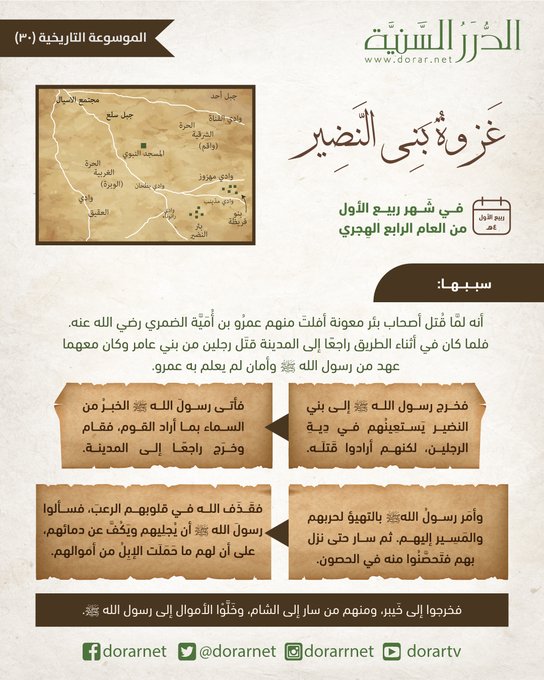 الموسوعة التاريخية (٣٠)
الدُّرَرُ السَّنِيَّة
www.dorar.net
غَزوةُ بَنِي النَّضِير
في شَهر ربيع الأول
من العام الرابع الهِجري
ربيع الأول
٤هـ
جبل أحد
مجتمع الأسيال
جبل سلع
وادي القناة
الحرة
الشرقية
(واقم)
المسجد النبوي
الحرة
الغربية
(الوبرة)
وادي مهزوز
وادي بطحان
وادي مذينب
وادي
العقيق
بنو
قريظة
بئر
النضير
سببها:
أنه لمَّا قُتل أصحاب بئر معونة أفلتَ منهم عمرُو بن أُمَيَّة الضمري رضي الله عنه.
فلما كان في أثناء الطريق راجعًا إلى المدينة قتَل رجلين من بني عامر وكان معهما
عهد من رسول الله ﷺ وأمان لم يعلم به عمرو.
فخرج رسول الله ﷺ إلى بني
النضير يَستعِينُهم في دِيةِ
الرجلين، لكنهم أرادوا قتلَه.
فأتى رسولَ الله ﷺ الخبرُ من
السماء بما أراد القوم، فقام
وخرَج راجعًا إلى المدينة.
وأمَر رسولُ اللهﷺ بالتهيؤ لحربهم
والمَسِير إليهم. ثم سار حتى نزل
بهم فتَحصَّنُوا منه في الحصون.
فقَذَف الله في قلوبهم الرعبَ، فسألوا
رسولَ الله ﷺ أن يُجلِيهم ويَكُفَّ عن دمائهم،
على أن لهم ما حَمَلَت الإبِلُ من أموالهم.
فخرجوا إلى خَيبر، ومنهم من سار إلى الشام، وخَلَّوُا الأموال إلى رسول الله ﷺ.
dorarnet
@dorarnet
dorarrnet
dorartv